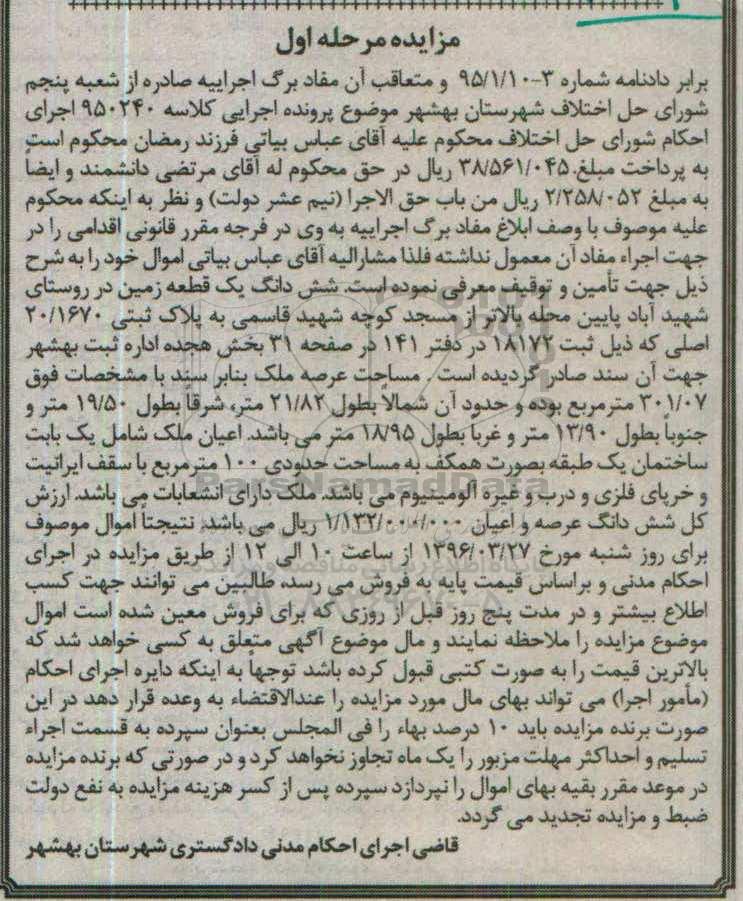 مزایده مرحله اول
برابر دادنامه شماره ۳-۹۵/۱/۱۰ و متعاقب آن مفاد برگ اجراییه صادره از شعبه پنجم
شورای حل اختلاف شهرستان بهشهر موضوع پرونده اجرایی کلاسه ۹۵۰۲۴۰ اجرای
احکام شورای حل اختلاف محکوم علیه آقای عباس بیاتی فرزند رمضان محکوم است
به پرداخت مبلغ ۳۸/۵۶۱/۰۴۵ ریال در حق محکوم له آقای مرتضی دانشمند و ایضا
به مبلغ ۲/۲۵۸/۰۵۲ ریال من باب حق الاجرا (نیم عشر دولت) و نظر به اینکه محکوم
علیه موصوف با وصف ابلاغ مفاد برگ اجراییه به وی در فرجه مقرر قانونی اقدامی را در
جهت اجراء مفاد آن معمول نداشته فلذا مشارالیه آقای عباس بیاتی اموال خود را به شرح
ذیل جهت تأمین و توقیف معرفی نموده است. شش دانگ یک قطعه زمین در روستای
شهید آباد پایین محله بالاتر از مسجد کوچه شهید قاسمی به پلاک ثبتی ۲۰/۱۶۷۰
اصلی که ذیل ثبت ۱۸۱۷۲ در دفتر ۱۴۱ در صفحه ۳۱ بخش هجده اداره ثبت بهشهر
جهت آن سند صادر گردیده است . مساحت عرصه ملک بنابر سند با مشخصات فوق
۳۰۱/۰۷ مترمربع بوده و حدود آن شمالاً بطول ۲۱/۸۲ متر، شرقاً بطول ۱۹/۵۰ متر و
جنوباً بطول ۱۳/۹۰ متر و غرباً بطول ۱۸/۹۵ متر می باشد. اعیان ملک شامل یک بابت
ساختمان یک طبقه بصورت همکف به مساحت حدودی ۱۰۰ مترمربع با سقف ایرانیت
و خرپای فلزی و درب و غیره آلومینیوم می باشد. ملک دارای انشعابات می باشد. ارزش
کل شش دانگ عرصه و اعیان ۱/۱۳۲/۰۰۰/۰۰۰ ریال می باشد، نتیجتاً اموال موصوف
برای روز شنبه مورخ ۱۳۹۶/۰۳/۲۷ از ساعت ۱۰ الی ۱۲ از طریق مزایده در اجرای
احکام مدنی و براساس قیمت پایه به فروش می رسد، طالبین می توانند جهت کسب
اطلاع بیشتر و در مدت پنج روز قبل از روزی که برای فروش معین شده است اموال
موضوع مزایده را ملاحظه نمایند و مال موضوع آگهی متعلق به کسی خواهد شد که
بالاترین قیمت را به صورت کتبی قبول کرده باشد توجهاً به اینکه دایره اجرای احکام
(مأمور اجرا) می تواند بهای مال مورد مزایده را عندالاقتضاء به وعده قرار دهد در این
صورت برنده مزایده باید ۱۰ درصد بهاء را فی المجلس بعنوان سپرده به قسمت اجراء
تسلیم و احداکثر مهلت مزبور را یک ماه تجاوز نخواهد کرد و در صورتی که برنده مزایده
در موعد مقرر بقیه بهای اموال را نپردازد سپرده پس از کسر هزینه مزایده به نفع دولت
ضبط و مزایده تجدید می گردد.
قاضی اجرای احکام مدنی دادگستری شهرستان بهشهر
ParsNamadData